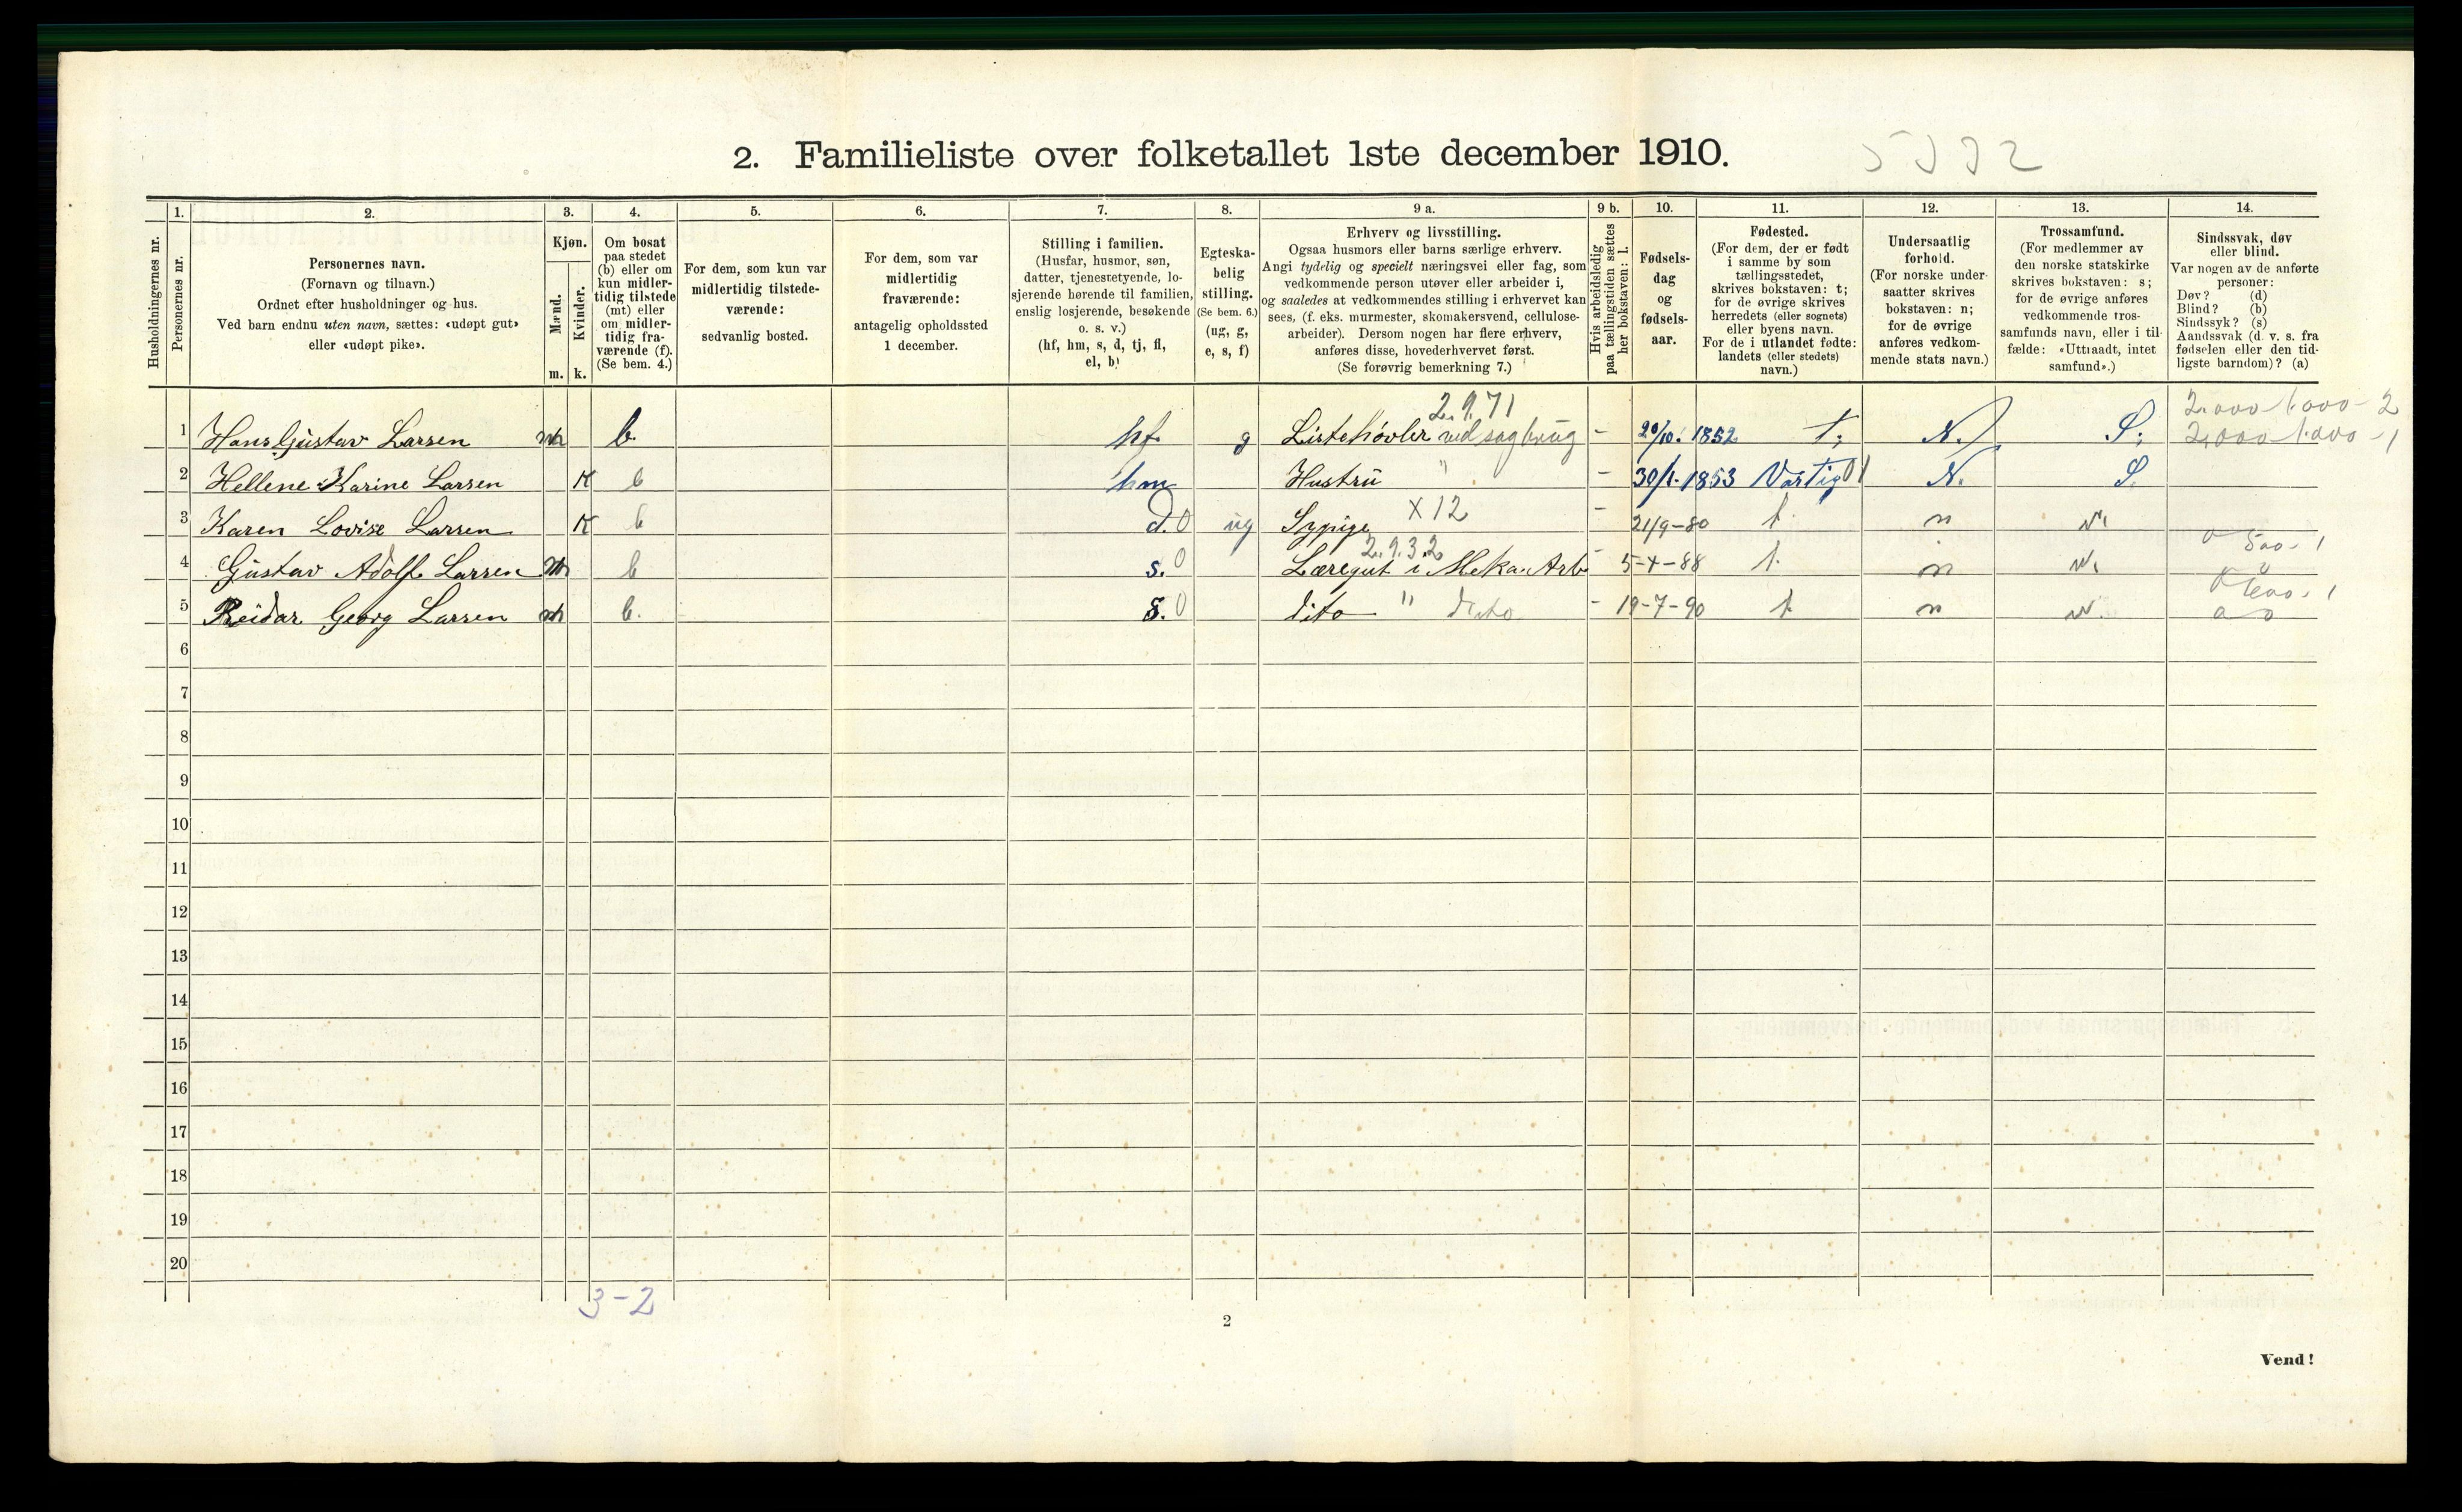 2. Familieliste over folketallet 1ste december 1910.
Husholdningernes nr.
1. Personernes nr.
2. Personernes navn.
(Fornavn og tilnavn.)
Ordnet efter husholdninger og hus.
Ved barn endnu uten navn, sættes: «udøpt gut»
eller «udøpt pike».
3. Kjøn.
Mænd. m.
Kvinder. k.
4. Om bosat
paa stedet
(b) eller om
kun midler-
tidig tilstede
(mt) eller
om midler-
tidig fra-
værende (f).
(Se bem. 4.)
5. For dem, som kun var
midlertidig tilstede-
værende:
sedvanlig bosted.
6. For dem, som var
midlertidig
fraværende:
antagelig opholdssted
1 december.
7. Stilling i familien.
(Husfar, husmor, søn,
datter, tjenestetyende, lo-
sjerende hørende til familien,
enslig losjerende, besøkende
o. s. v.)
(hf, hm, s, d, tj, fl,
el, b)
8. Egteska-
belig
stilling.
(Se bem. 6.)
(ug, g,
e, s, f)
9 a. Erhverv og livsstilling.
Ogsaa husmors eller barns særlige erhverv.
Angi tydelig og specielt næringsvei eller fag, som
vedkommende person utøver eller arbeider i,
og saaledes at vedkommendes stilling i erhvervet kan
sees, (f. eks. murmester, skomakersvend, cellulose-
arbeider). Dersom nogen har flere erhverv,
anføres disse, hovederhvervet først.
(Se forøvrig bemerkning 7.)
9 b. Hvis arbeidsledig
paa tællingstiden sættes
her bokstaven: l.
10. Fødsels-
dag
og
fødsels-
aar.
11. Fødested.
(For dem, der er født
i samme by som
tællingsstedet,
skrives bokstaven: t;
for de øvrige skrives
herredets (eller sognets)
eller byens navn.
For de i utlandet fødte:
landets (eller stedets)
navn.)
12. Undersaatlig
forhold.
(For norske under-
saatter skrives
bokstaven: n;
for de øvrige
anføres vedkom-
mende stats navn.)
13. Trossamfund.
(For medlemmer av
den norske statskirke
skrives bokstaven: s;
for de øvrige anføres
vedkommende tros-
samfunds navn, eller i til-
fælde: «Uttraadt, intet
samfund».)
14. Sindssvak, døv
eller blind.
Var nogen av de anførte
personer:
Døv? (d)
Blind? (b)
Sindssyk? (s)
Aandssvak (d. v. s. fra
fødselen eller den tid-
ligste barndom)? (a)
2.9.71
2.000-1.000-2
1 Hans Gustav Larsen m b. hf. g Listehøvler ved sagbrug - 20/10. 1852. t; N. S; 2.000-1.000-1
2 Hellene Karine Larsen K b hm Hustru " - 30/1. 1853 Vartig N. S.
3 Karen Lovise Larsen K b d. 0 ug Sypige X12 - 21/9-80 t. n
2.9.32
500.-1
4 Gustav Adolf Larsen m b s. 0 Læregut i Meka. Arb - 5-4-88 t. n
600.-1
5 Reidar Georg Larsen m b. s. 0 dito " dito - 19-7-90 t n
6
7
8
9
10
11
12
13
14
15
16
17
18
19
20
3-2
2
Vend!